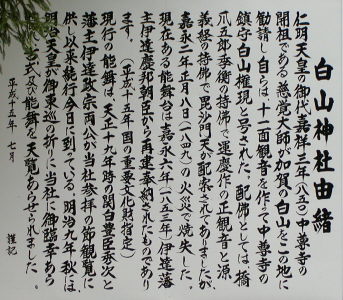 白山神社由緒
仁明天皇の御代嘉祥三年(八五〇)中尊寺の
開祖である慈覚大師が加賀の白山をこの地に
勧請し自らは十一面観音を作って中尊寺の
鎮守白山権現と号された。配佛としては
爪五郎季衡の持佛で運慶作の正観音と源
義経の持佛で毘沙門天が配案されてありましたが
嘉永二年正月八日(一八四九)の火災で焼失した。
現在ある能舞台は嘉永六年(一八五三)伊達藩
主伊達慶邦朝臣から再建奉納されたものであり
ます。(平成十五年国の重要文化財指定)
現行の能舞は、天正十九年時の関白豊臣秀次と
藩主伊達政宗両公が当社参拝の節観覧に
供し以来続行今日に到っている。明治九年秋には、
明治天皇が御東巡の折りに当社に御臨幸あら
古式及び能舞を天覧あらせられました。
平成十五年七月
謹記